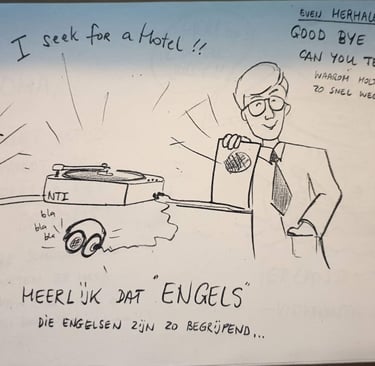 I seek for a Hotel !!
EVEN HERHALE
GOOD BYE
CAN YOU TE
WAAROM HOL
ZO SNEL WEG
NTI
bla
bla
ble
HEERLIJK DAT "ENGELS"
DIE ENGELSEN ZIJN ZO BEGRIJPEND...